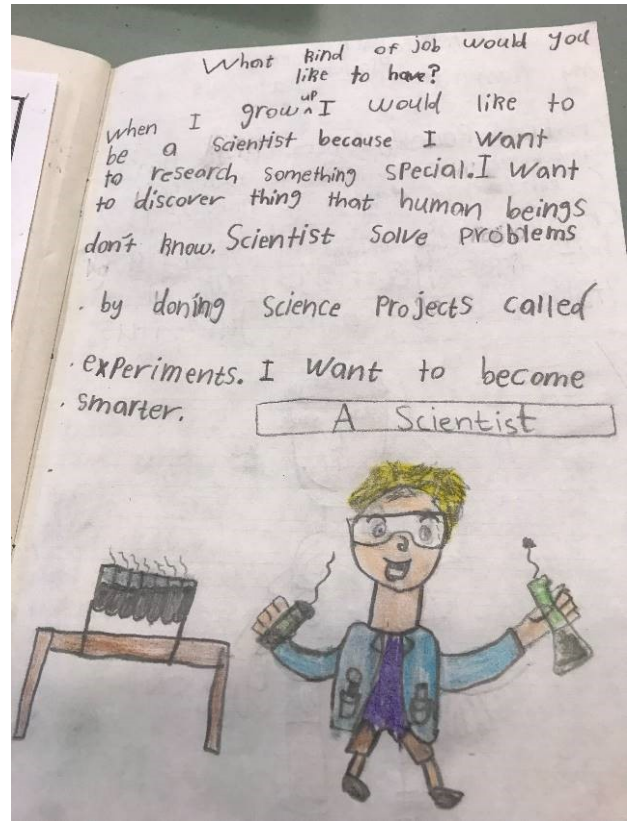 What kind of job would you
like to have?
when I grow up I would like to
be a Scientist because I want
to research something special. I want
to discover thing that human beings
don't know. Scientist Solve Problems
by doning Science Projects called
experiments. I want to become
smarter.
A Scientist